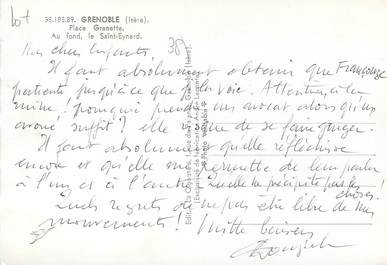 bt
38.185.89. GRENOBLE (Isère).
Place Grenette.
Au fond, le Saint-Eynard.
Mes chers enfants,
38
Il faut absolument obtenir que Françoise
patiente jusqu'à ce que je la voie. Attention, à la
mine! pourquoi prendre un avocat alors qu'un
avoué suffit? elle risque de se faire gruger.
Il faut absolument qu'elle réfléchisse
encore et qu'elle me permette de leur parler
à l'un et à l'autre. Qu'elle ne précipite pas les
choses.
Quels regrets de ne pas être libre de mes
mouvements! Mille baisers